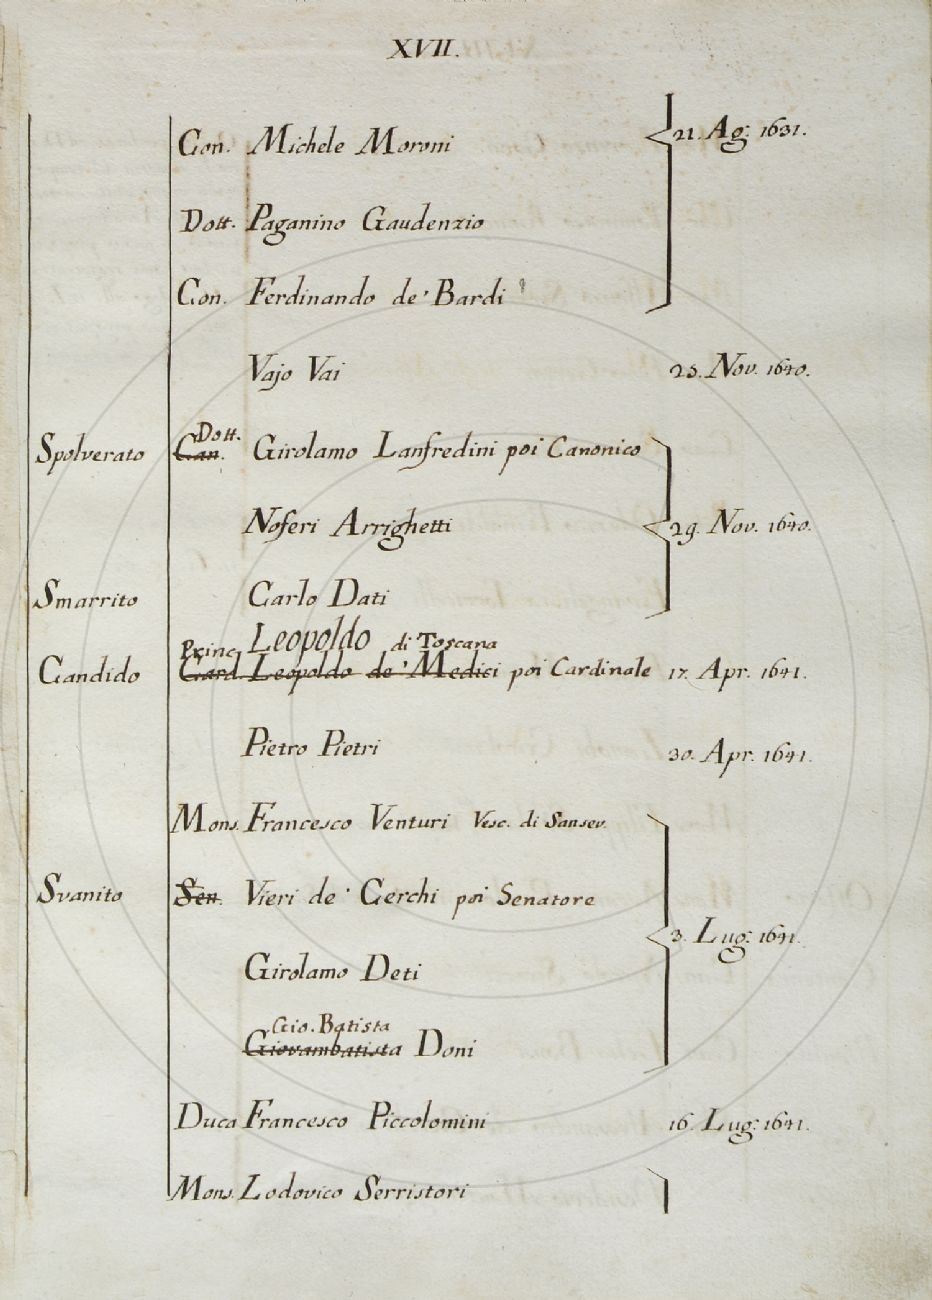 XVII.
Con. Michele Moroni 21. Ag: 1631.
Dott. Paganino Gaudenzio
Con. Ferdinando de' Bardi
Vajo Vai 23. Nov. 1640.
Dott.
Spolverato Can. Girolamo Lanfredini poi Canonico
Noferi Arrighetti 29. Nov. 1640.
Smarrito Carlo Dati
Princ. Leopoldo di Toscana
Candido Card. Leopoldo de' Medici poi Cardinale 17. Apr. 1641.
Pietro Pietri 30. Apr. 1641.
Mons. Francesco Venturi Vesc. di Sansev.
Svanito Sen. Vieri de' Cerchi poi Senatore
3. Lug: 1641.
Girolamo Deti
Gio. Batista
Giovambatista Doni
Duca Francesco Piccolomini 16. Lug: 1641.
Mons. Lodovico Serristori